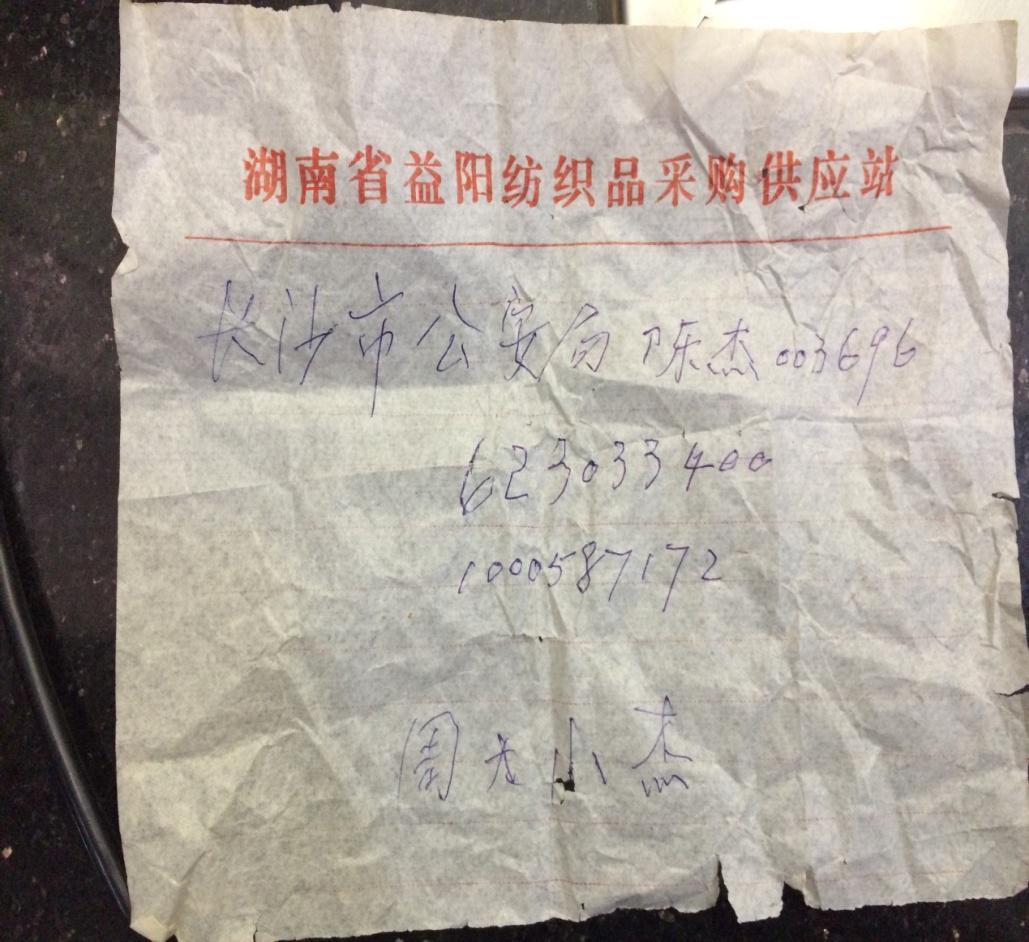 湖南省益阳纺织品采购供应站
长沙市公安局 陈杰 003696
623033400
1000587172
周 小杰